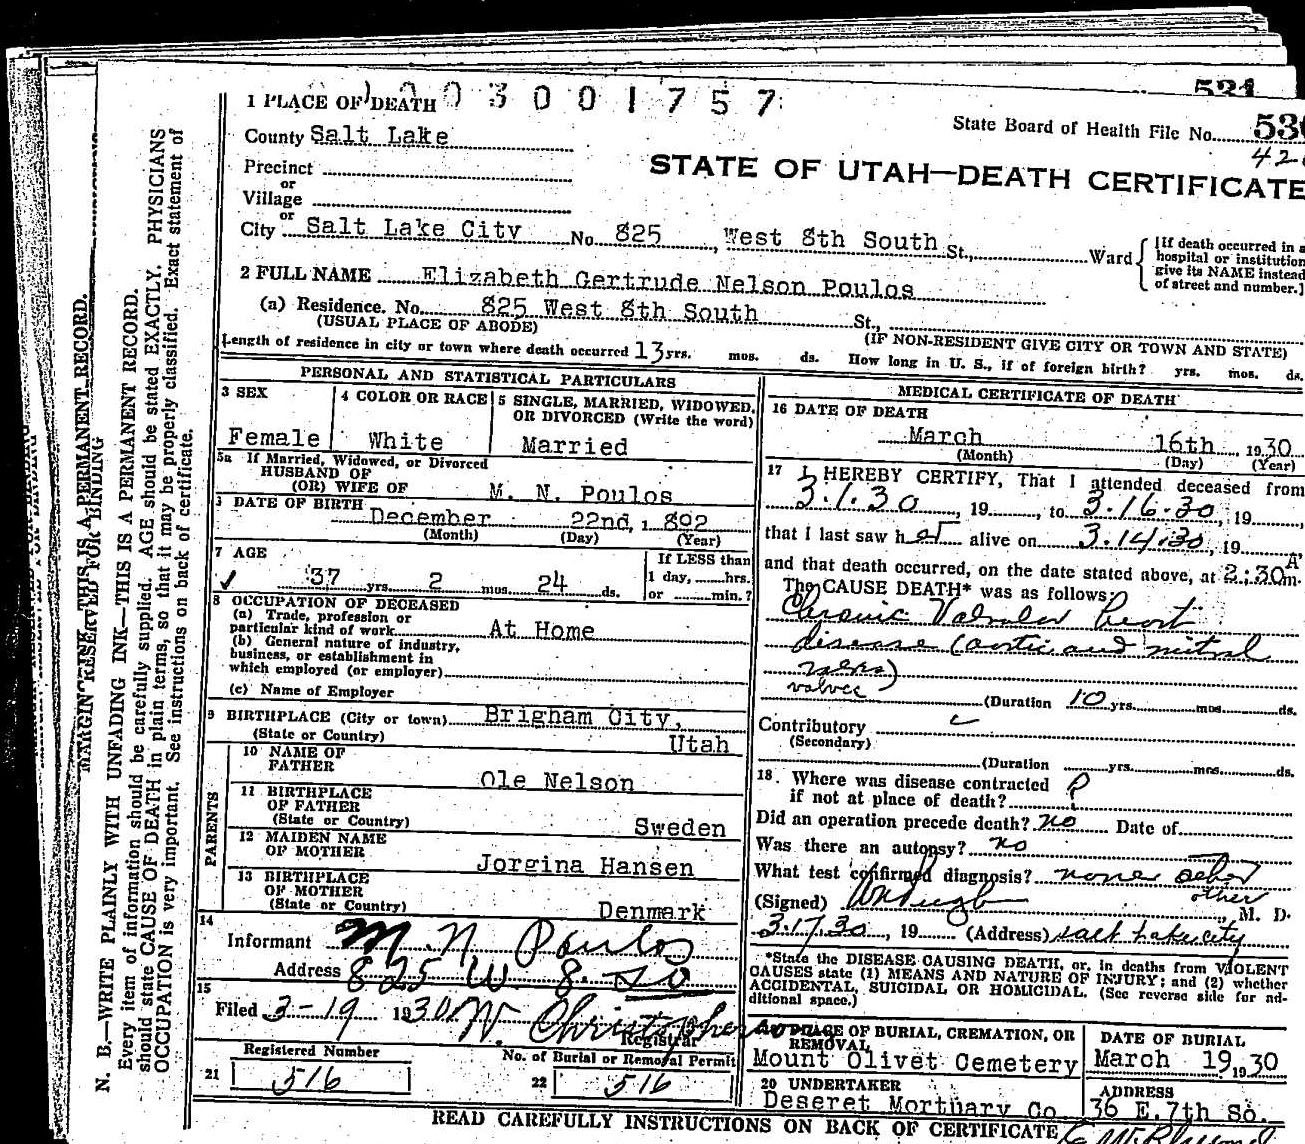 531
1 PLACE OF DEATH 03001757
State Board of Health File No. 530
County Salt Lake
42
STATE OF UTAH—DEATH CERTIFICATE
Precinct
or
Village
or
City Salt Lake City No. 825, West 8th South St., Ward
[If death occurred in a
hospital or institution
give its NAME instead
of street and number.]
2 FULL NAME Elizabeth Gertrude Nelson Poulos
(a) Residence. No. 825 West 8th South St.,
(USUAL PLACE OF ABODE) (IF NON-RESIDENT GIVE CITY OR TOWN AND STATE)
Length of residence in city or town where death occurred 13 yrs. mos. ds. How long in U. S., if of foreign birth? yrs. mos. ds.
PERSONAL AND STATISTICAL PARTICULARS
3 SEX
Female
4 COLOR OR RACE
White
5 SINGLE, MARRIED, WIDOWED,
OR DIVORCED (Write the word)
Married
5a If Married, Widowed, or Divorced
HUSBAND OF
(OR) WIFE OF M. N. Poulos
DATE OF BIRTH
December 22nd, 1892
(Month) (Day) (Year)
7 AGE
37 yrs. 2 mos. 24 ds.
If LESS than
1 day, hrs.
or min.?
8 OCCUPATION OF DECEASED
(a) Trade, profession or
particular kind of work At Home
(b) General nature of industry,
business, or establishment in
which employed (or employer)
(c) Name of Employer
9 BIRTHPLACE (City or town) Brigham City,
(State or Country) Utah
PARENTS
10 NAME OF
FATHER
Ole Nelson
11 BIRTHPLACE
OF FATHER
(State or Country) Sweden
12 MAIDEN NAME
OF MOTHER Jorgina Hansen
13 BIRTHPLACE
OF MOTHER
(State or Country) Denmark
14
Informant M. N. Poulos
Address 825 W 8. So
15
Filed 3-19 1930 W. Christopherson
Registrar
Registered Number No. of Burial or Removal Permit
21 516 22 516
MEDICAL CERTIFICATE OF DEATH
16 DATE OF DEATH
March 16th, 1930
(Month) (Day) (Year)
17 I HEREBY CERTIFY, That I attended deceased from
3.1.30, 19, to 3.16.30, 19
that I last saw her alive on 3.14.30, 19
and that death occurred, on the date stated above, at 2:30 A m.
The CAUSE DEATH* was as follows:
Chronic Valvular heart
disease (aortic and mitral
valves)
valves
(Duration 10 yrs. mos. ds.
Contributory
(Secondary)
(Duration yrs. mos. ds.
18. Where was disease contracted
if not at place of death? ?
Did an operation precede death? no Date of
Was there an autopsy? no
What test confirmed diagnosis? none other
other
(Signed) M. D.
3.17.30, 19 (Address) Salt Lake City
*State the DISEASE CAUSING DEATH, or, in deaths from VIOLENT
CAUSES state (1) MEANS AND NATURE OF INJURY; and (2) whether
ACCIDENTAL, SUICIDAL OR HOMICIDAL. (See reverse side for ad-
ditional space.)
PLACE OF BURIAL, CREMATION, OR
REMOVAL
Mount Olivet Cemetery
DATE OF BURIAL
March 19 1930
20 UNDERTAKER
Deseret Mortuary Co.
ADDRESS
36 E. 7th So.
READ CAREFULLY INSTRUCTIONS ON BACK OF CERTIFICATE
MARGIN RESERVED FOR BINDING
THIS IS A PERMANENT RECORD.
N. B.—WRITE PLAINLY WITH UNFADING INK—THIS IS A PERMANENT RECORD.
Every item of information should be carefully supplied. AGE should be stated EXACTLY. PHYSICIANS
should state CAUSE OF DEATH in plain terms, so that it may be properly classified. Exact statement of
OCCUPATION is very important. See instructions on back of certificate.